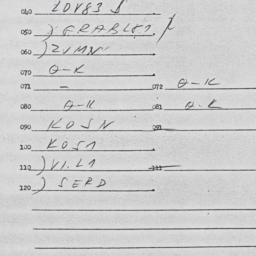 040 LOV83 $
050 ) GRABL81.
060 ) ZVMN
070 O-K
071 – 072 O-K
080 O-K 081 O-K
090 KOSN 091
100 KOS1
110 ) VI.L1 111
120 ) SERD